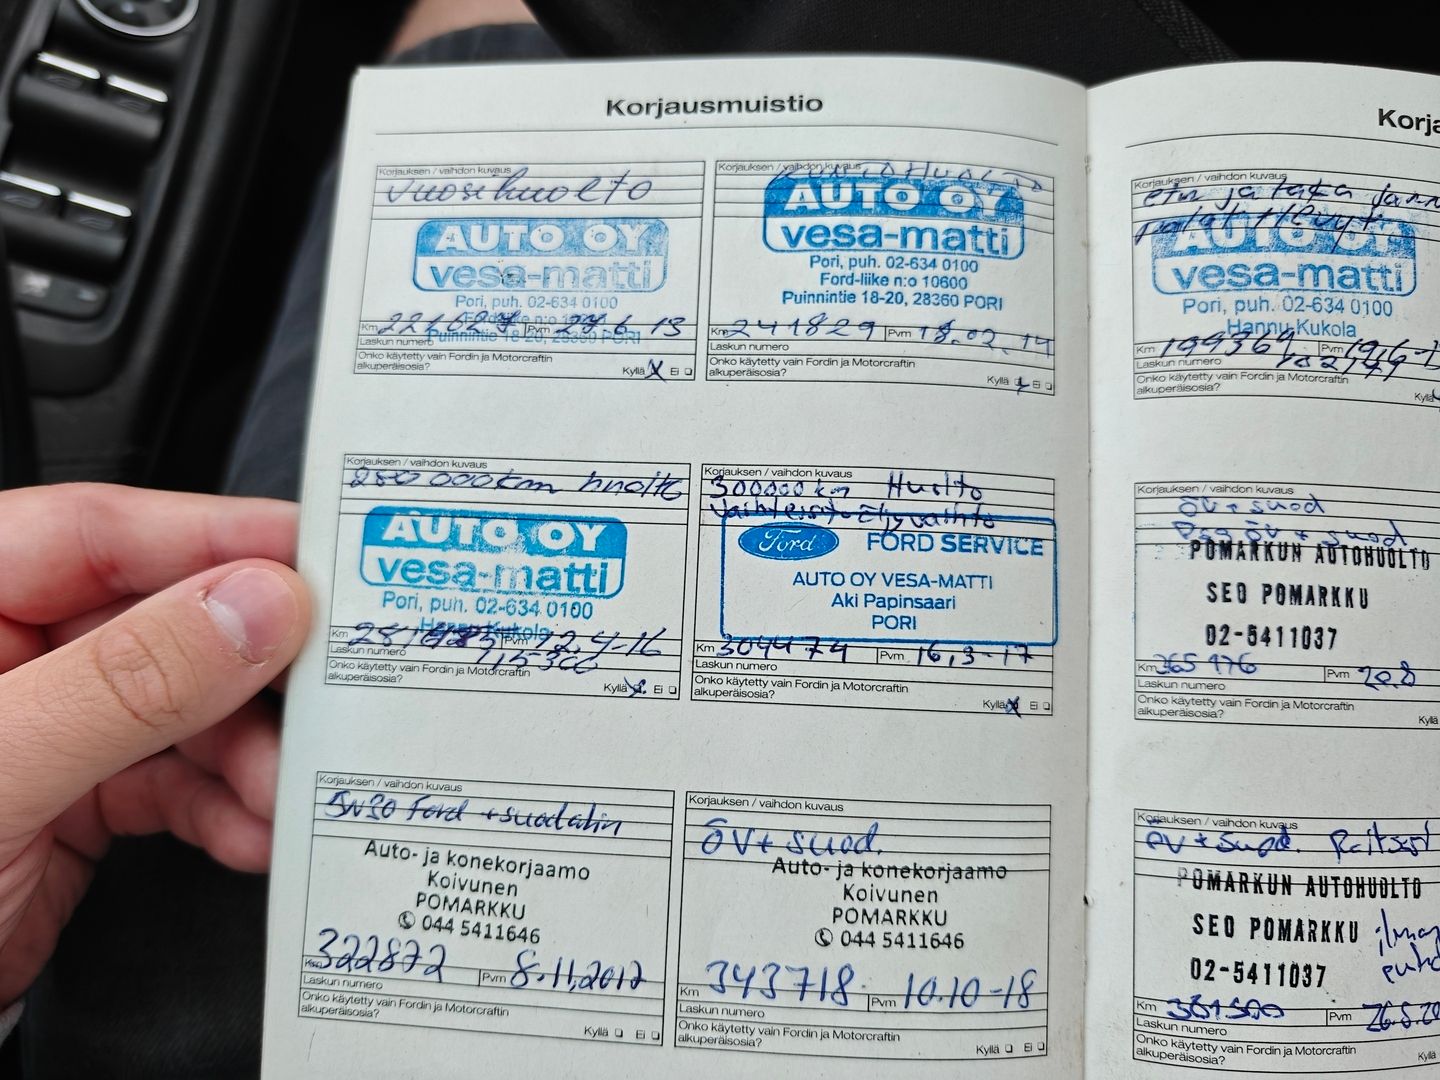 Korjausmuistio
Korjauksen / vaihdon kuvaus
vuosihuolto
AUTO OY
vesa-matti
Pori, puh. 02-634 0100
Puinnintie 18-20, 28360 PORI
Km Pvm 6 13
Laskun numero
Onko käytetty vain Fordin ja Motorcraftin
alkuperäisosia?
Kyllä X Ei
Korjauksen / vaihdon kuvaus
AUTO OY
vesa-matti
Pori, puh. 02-634 0100
Ford-liike n:o 10600
Puinnintie 18-20, 28360 PORI
Km 241829 Pvm 18.02.14
Laskun numero
Onko käytetty vain Fordin ja Motorcraftin
alkuperäisosia?
Kyllä Ei
Korjauksen / vaihdon kuvaus
280 000km huolto
AUTO OY
vesa-matti
Pori, puh. 02-634 0100
Hannu Kukola
Km Pvm 12.4-16
Laskun numero
Onko käytetty vain Fordin ja Motorcraftin
alkuperäisosia?
Kyllä Ei
Korjauksen / vaihdon kuvaus
300000 km Huolto
Vaihteisto öljyvaihto
Ford FORD SERVICE
AUTO OY VESA-MATTI
Aki Papinsaari
PORI
Km 304474 Pvm 16,3-17
Laskun numero
Onko käytetty vain Fordin ja Motorcraftin
alkuperäisosia?
Kyllä X Ei
Korjauksen / vaihdon kuvaus
5w30 Ford + suodatin
Auto- ja konekorjaamo
Koivunen
POMARKKU
044 5411646
Km 322872 Pvm 8.11.2017
Laskun numero
Onko käytetty vain Fordin ja Motorcraftin
alkuperäisosia?
Kyllä Ei
Korjauksen / vaihdon kuvaus
ÖV + suod.
Auto- ja konekorjaamo
Koivunen
POMARKKU
044 5411646
Km 343718 Pvm 10.10-18
Laskun numero
Onko käytetty vain Fordin ja Motorcraftin
alkuperäisosia?
Kyllä Ei
Korja
Korjauksen / vaihdon kuvaus
etu ja taka jarr
AUTO OY
vesa-matti
Pori, puh. 02-634 0100
Hannu Kukola
Km 199369 Pvm
Laskun numero
Onko käytetty vain Fordin ja Motorcraftin
alkuperäisosia?
Kyllä
Korjauksen / vaihdon kuvaus
ÖV + suod
ÖV + suod
POMARKUN AUTOHUOLTO
SEO POMARKKU
02-5411037
Km 365176 Pvm 20.8
Laskun numero
Onko käytetty vain Fordin ja Motorcraftin
alkuperäisosia?
Kyllä
Korjauksen / vaihdon kuvaus
ÖV + suod. Raitis
POMARKUN AUTOHUOLTO
SEO POMARKKU ilman
02-5411037
Km Pvm 26.5.20
Laskun numero
Onko käytetty vain Fordin ja Motorcraftin
alkuperäisosia?
Kyllä